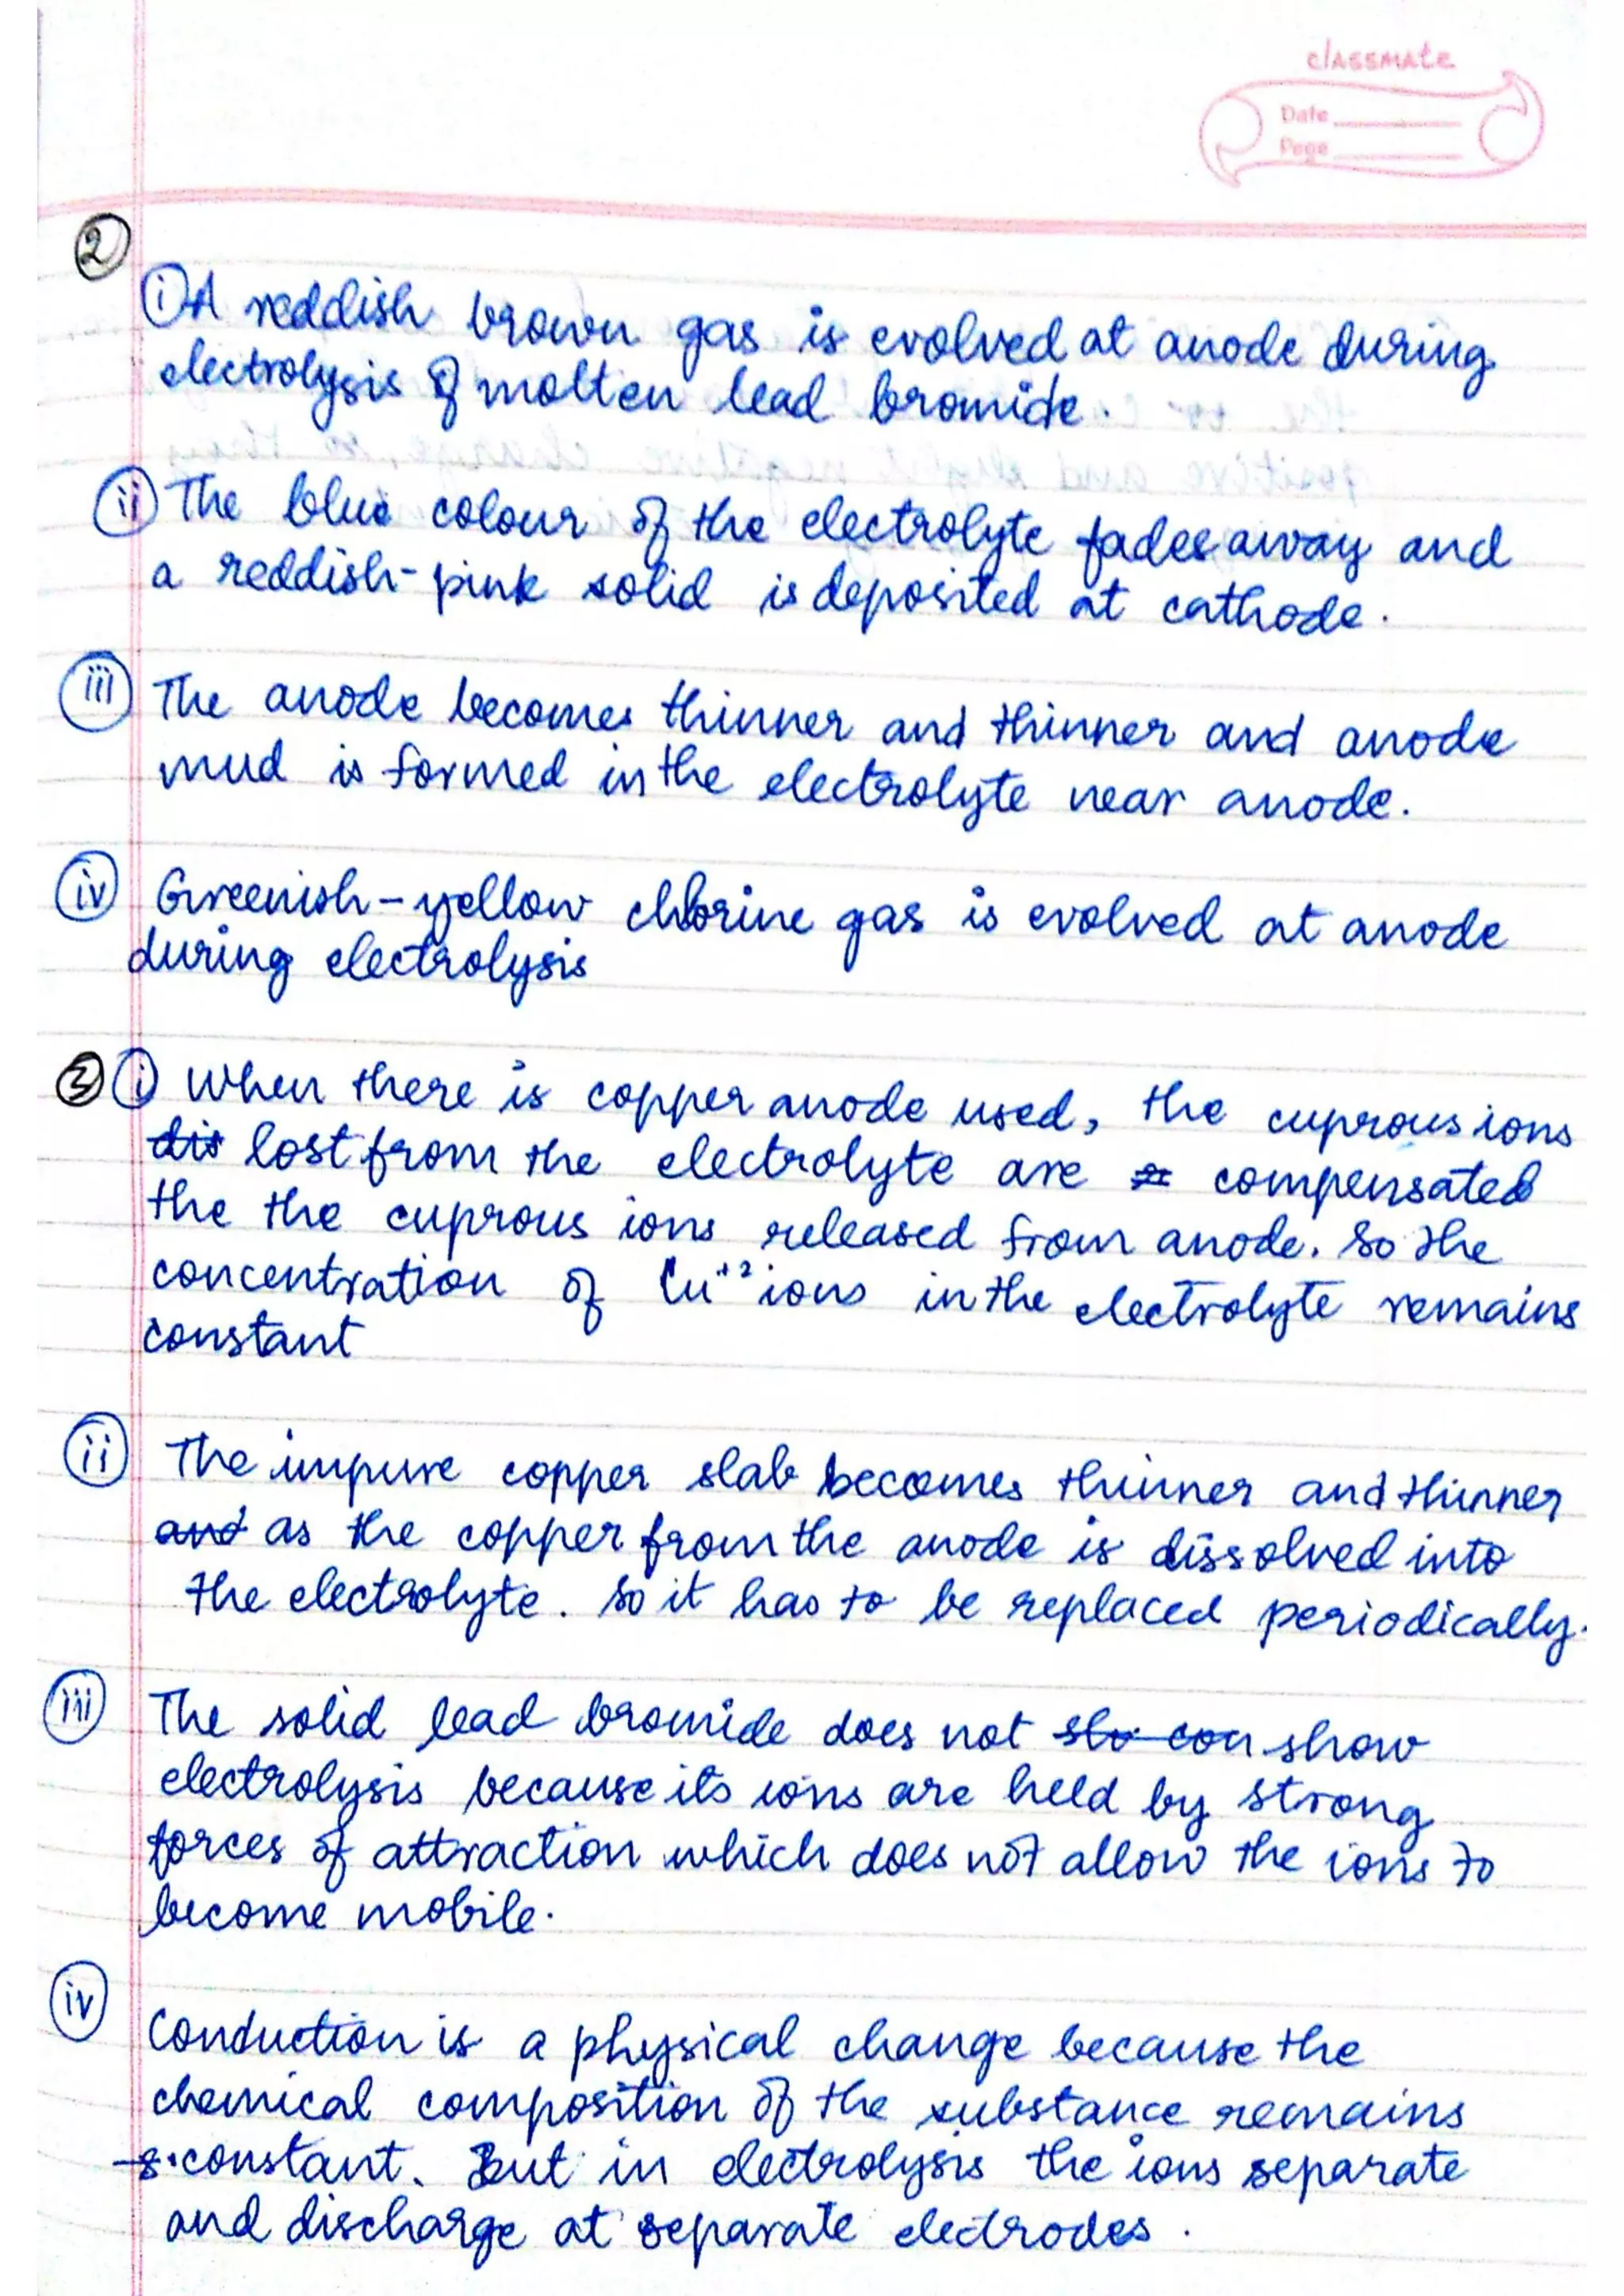 classmate
Date
Page
2
i A reddish brown gas is evolved at anode during
electrolysis of molten lead bromide.
ii The blue colour of the electrolyte fades away and
a reddish-pink solid is deposited at cathode.
iii The anode becomes thinner and thinner and anode
mud is formed in the electrolyte near anode.
iv Greenish-yellow chlorine gas is evolved at anode
during electrolysis
3 i When there is copper anode used, the cuprous ions
dis lost from the electrolyte are compensated
the the cuprous ions released from anode. So the
concentration of Cu+2 ions in the electrolyte remains
constant
ii The impure copper slab becomes thinner and thinner
and as the copper from the anode is dissolved into
the electrolyte. So it has to be replaced periodically.
iii The solid lead bromide does not sho con show
electrolysis because its ions are held by strong
forces of attraction which does not allow the ions to
become mobile.
iv
Conduction is a physical change because the
chemical composition of the substance remains
constant. But in electrolysis the ions separate
and discharge at separate electrodes.